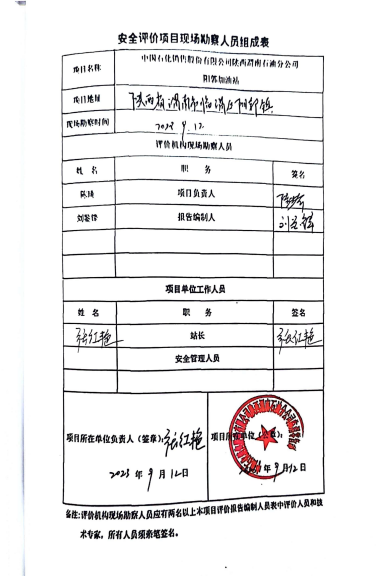 安全评价项目现场勘察人员组成表
项目名称 中国石化销售股份有限公司陕西渭南石油分公司
阳郭加油站
项目地址 陕西省渭南市临渭区阳郭镇
现场勘察时间 2023.9.12
评价机构现场勘察人员
姓 名 职 务 签名
陈 项目负责人
刘 报告编制人 刘
项目单位工作人员
姓 名 职 务 签名
张红艳 站长 张红艳
安全管理人员
项目所在单位负责人（签章）：张红艳 项目所在单位（章）：
2023年9月12日 2023年9月12日
备注：评价机构现场勘察人员应有两名以上本项目评价报告编制人员表中评价人员和技
术专家，所有人员须亲笔签名。